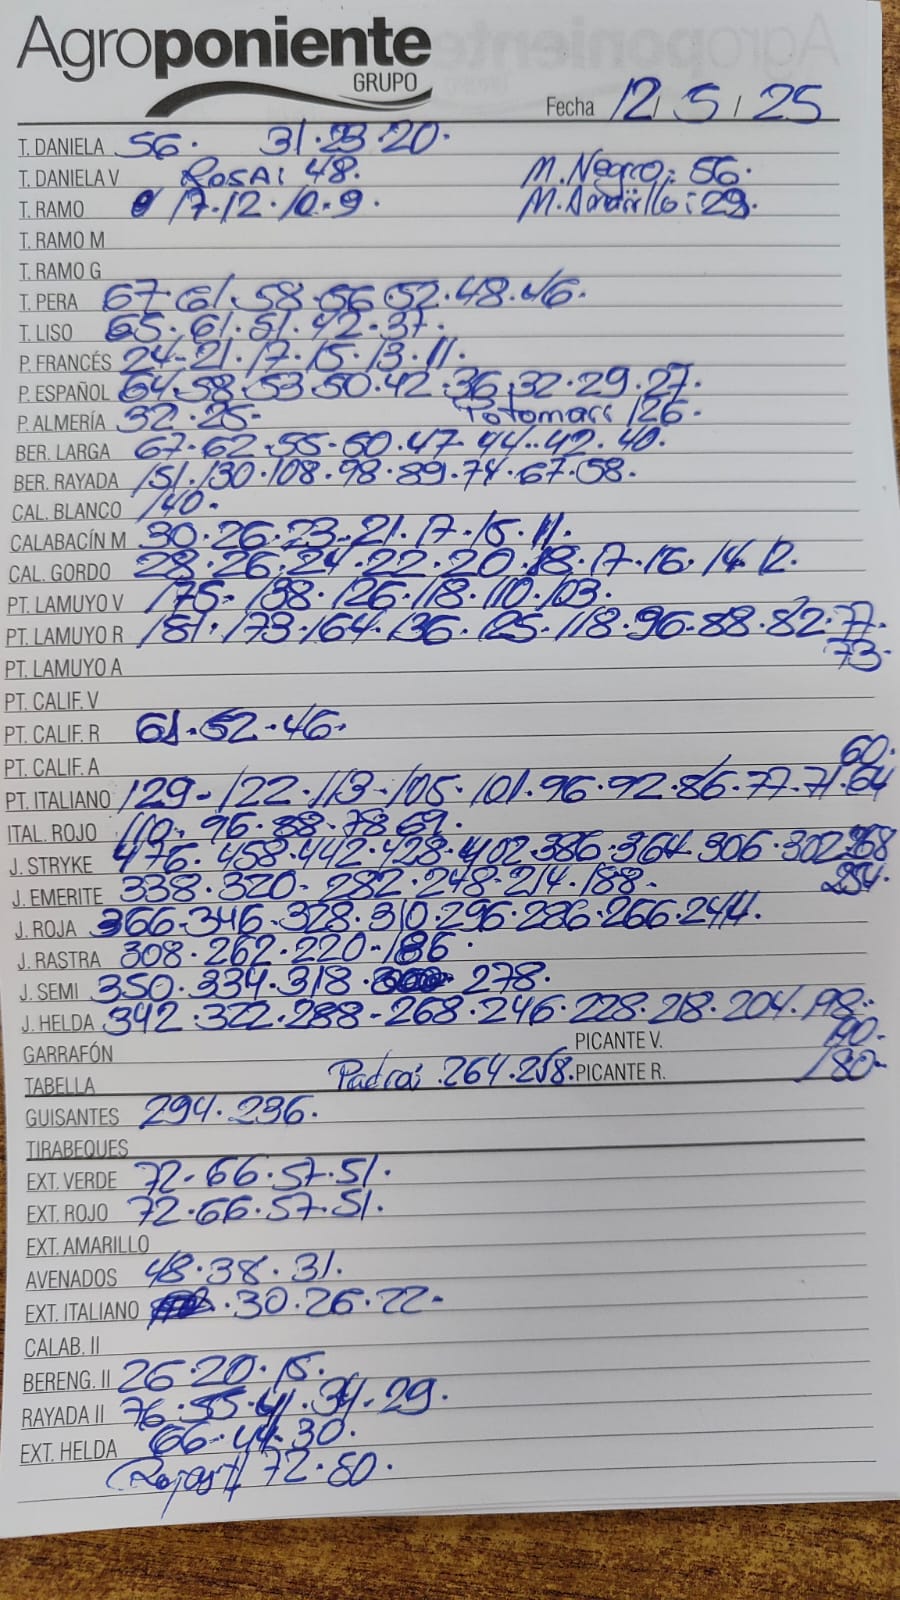 Agroponiente
GRUPO
Fecha 12/5/25
T. DANELA 56. 31.23.20.
T. DANIELA V Rosa: 48. M. Negro: 56.
T. RAMO 17.12.10.9. M. Amarillo: 29.
T. RAMO M
T. RAMO G
T. PERA 67.61.58.56.52.48.46.
T. LISO 65.61.51.42.37.
P. FRANCÉS 24-21.17.15.13.11.
P. ESPAÑOL 64.58.53.50.42.36.32.29.27.
P. ALMERÍA 32.25- Totomaci 126.
BER. LARGA 67.62.55-50.47-44.42.40.
BER. RAYADA 151.130.108.98.89.74.67.58.
CAL. BLANCO 140.
CALABACÍN M 30.26.23-21.17.15.11.
CAL. GORDO 28.26.24.22.20.18.17.16.14.12.
PT. LAMUYO V 175-138.126.118.110.103.
PT. LAMUYO R 181.173.164.136.125.118.96.88.82.77.
73-
PT. LAMUYO A
PT. CALIF. V
PT. CALIF. R 61.52.46.
PT. CALIF. A
60.
PT. ITALIANO 129-122.113-105.101.96.92.86.77.71.64
ITAL. ROJO 110-96.88-78.69.
J. STRYKE 476.458.442.428.402.386.364.306.302.268
254.
J. EMERITE 338.320-282.248-214.188-
J. ROJA 366-346-328.310.296.286.266.244.
J. RASTRA 308.262.220-186.
J. SEMI 350.334.318. 278.
J. HELDA 342.322.288-268.246.228.218.204.198.
190.
180-
GARRAFÓN PICANTE V.
TABELLA Padra: 264.258. PICANTE R.
GUISANTES 294.236.
TIRABEQUES
EXT. VERDE 72-66.57.51.
EXT. ROJO 72.66.57.51.
EXT. AMARILLO
AVENADOS 48.38.31.
EXT. ITALIANO .30.26.22-
CALAB. II
BERENG. II 26.20.15.
RAYADA II 76.55.41.34.29.
EXT. HELDA 66-44.30.
72.60.